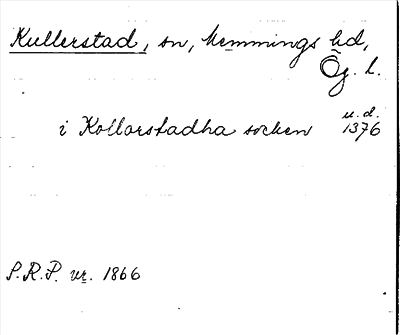 Kullerstad, sn, Memmings hd,
Ög. l.
i Kollarstadha socken u.d. 1376
S.R.P. nr. 1866